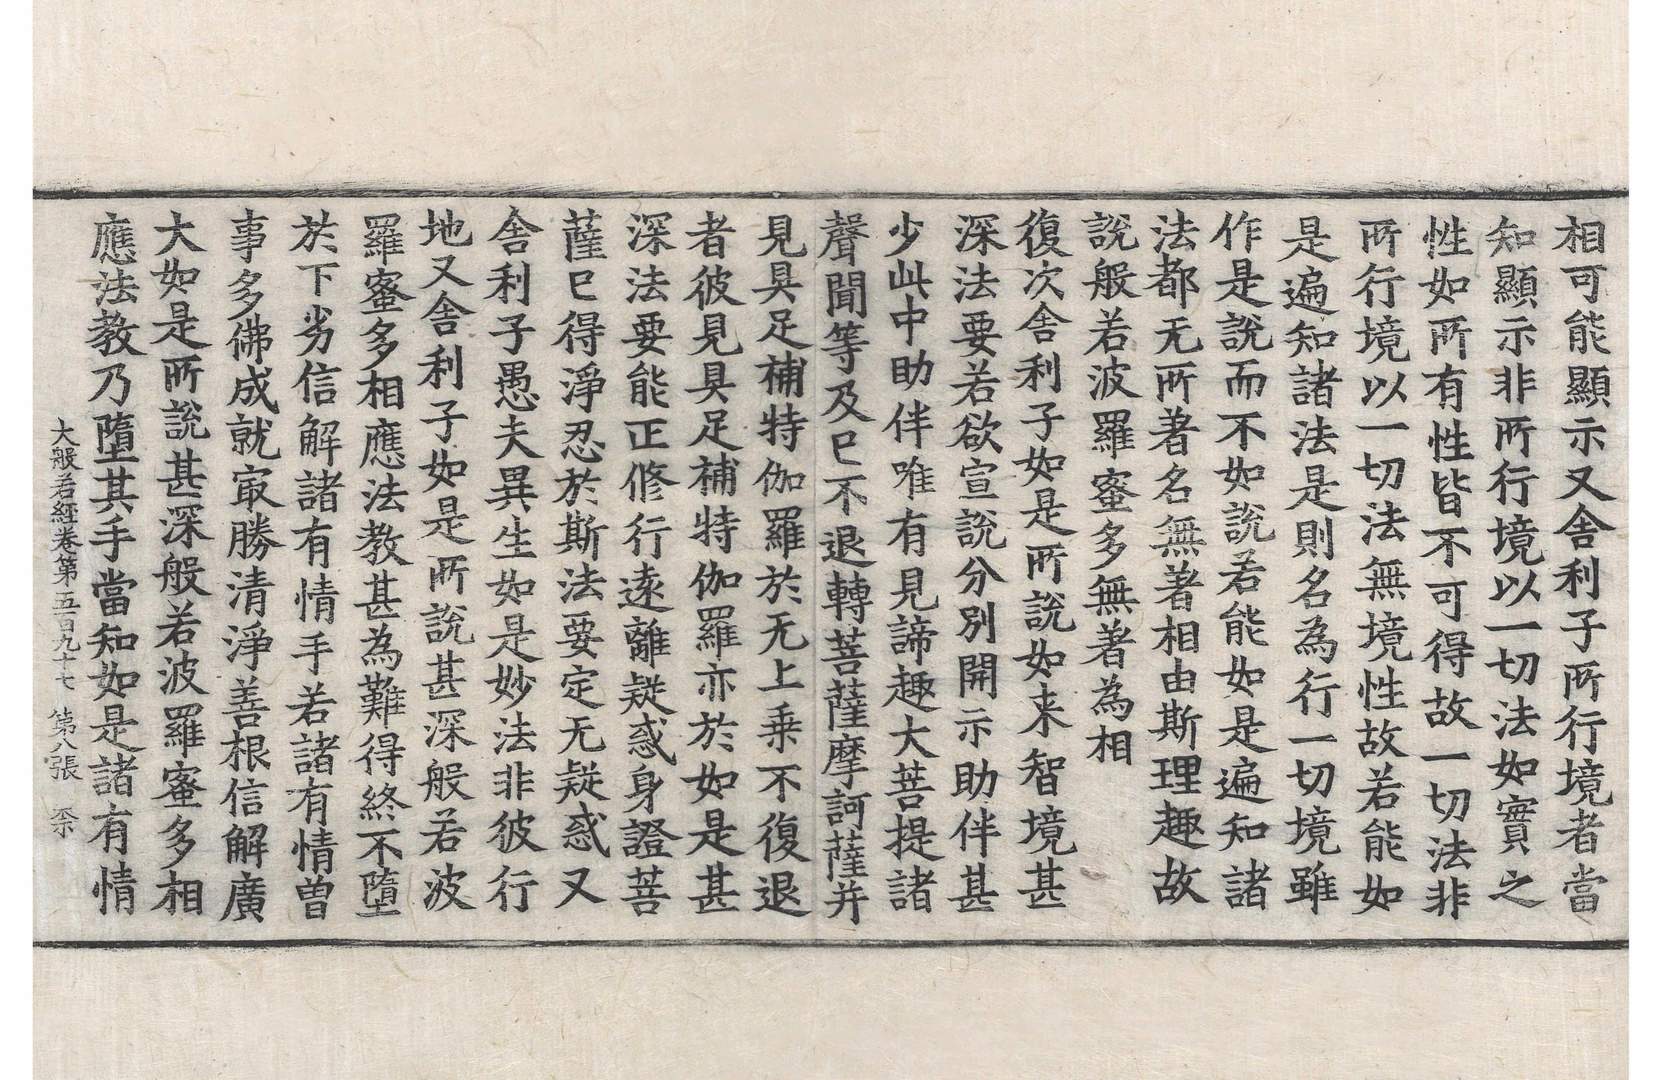 相可能顯示又舍利子所行境者當
知顯示非所行境以一切法如實之
性如所有性皆不可得故一切法非
所行境以一切法無境性故若能如
是遍知諸法是則名為行一切境雖
作是說而不如說若能如是遍知諸
法都无所著名無著相由斯理趣故
說般若波羅蜜多無著為相
復次舍利子如是所說如来智境甚
深法要若欲宣說分別開示助伴甚
少此中助伴唯有見諦趣大菩提諸
聲聞等及已不退轉菩薩摩訶薩并
見具足補特伽羅於无上乗不復退
者彼見具足補特伽羅亦於如是甚
深法要能正修行遠離疑惑身證菩
薩已得淨忍於斯法要定无疑惑又
舍利子愚夫異生如是妙法非彼行
地又舍利子如是所說甚深般若波
羅蜜多相應法教甚為難得終不墮
於下劣信解諸有情手若諸有情曾
事多佛成就㝡勝清淨善根信解廣
大如是所說甚深般若波羅蜜多相
應法教乃墮其手當知如是諸有情
大般若經卷第五百九十七 第八張 柰